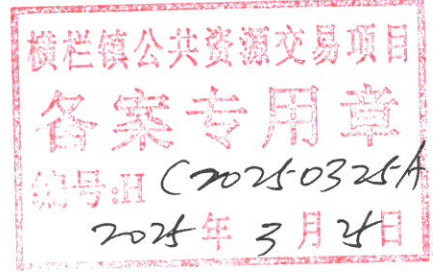 横栏镇公共资源交易项目
备案专用章
编号:H C2025-0325A
2025年3月25日